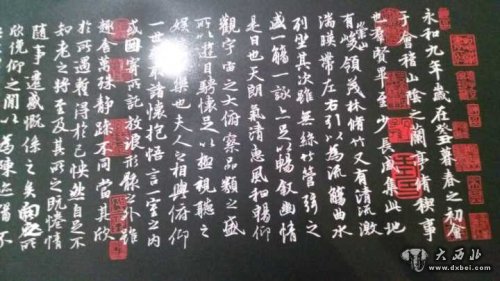 永和九年歲在癸丑暮春之初會
于會稽山陰之蘭亭脩禊事
也羣賢畢至少長咸集此地
有崇山峻領茂林脩竹又有清流激
湍暎帶左右引以為流觴曲水
列坐其次雖無絲竹管弦之
盛一觴一詠亦足以暢敘幽情
是日也天朗氣清惠風和暢仰
觀宇宙之大俯察品類之盛
所以遊目騁懷足以極視聽之
娛樂也夫人之相與俯仰
一世取諸懷抱悟言一室之內
或因寄所託放浪形骸之外雖
趣舍萬殊靜躁不同當其欣
於所遇暫得於己怏然自足不
知老之將至及其所之既惓情
隨事遷感慨係之矣向之所
欣俛仰之閒以為陳迹猶不
大西北
www.dxbei.com